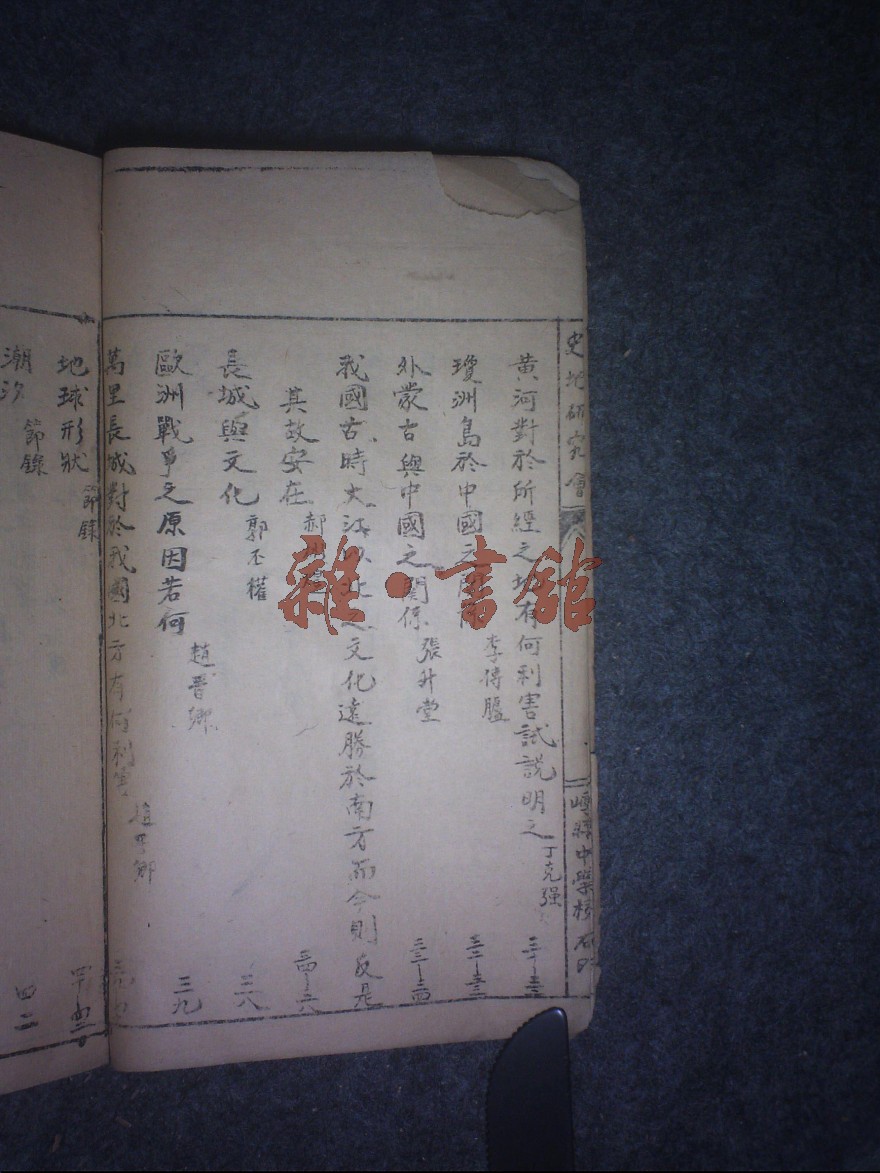 史地研究會
崞縣中學校石印
黃河對於所經之地有何利害試說明之 丁克强
瓊洲島於中國之 李得 三二—三三
外蒙古與中國之關係 張升堂 三三—三四
我國古時大江以北之文化遠勝於南方而今則反是
其故安在 郝
長城與文化 郭丕權 三八
歐洲戰爭之原因若何 趙晋鄉 三九
萬里長城對於我國北方有何利害 趙晋鄉
地球形狀 節錄
潮汐 節錄 四二
雜·書館